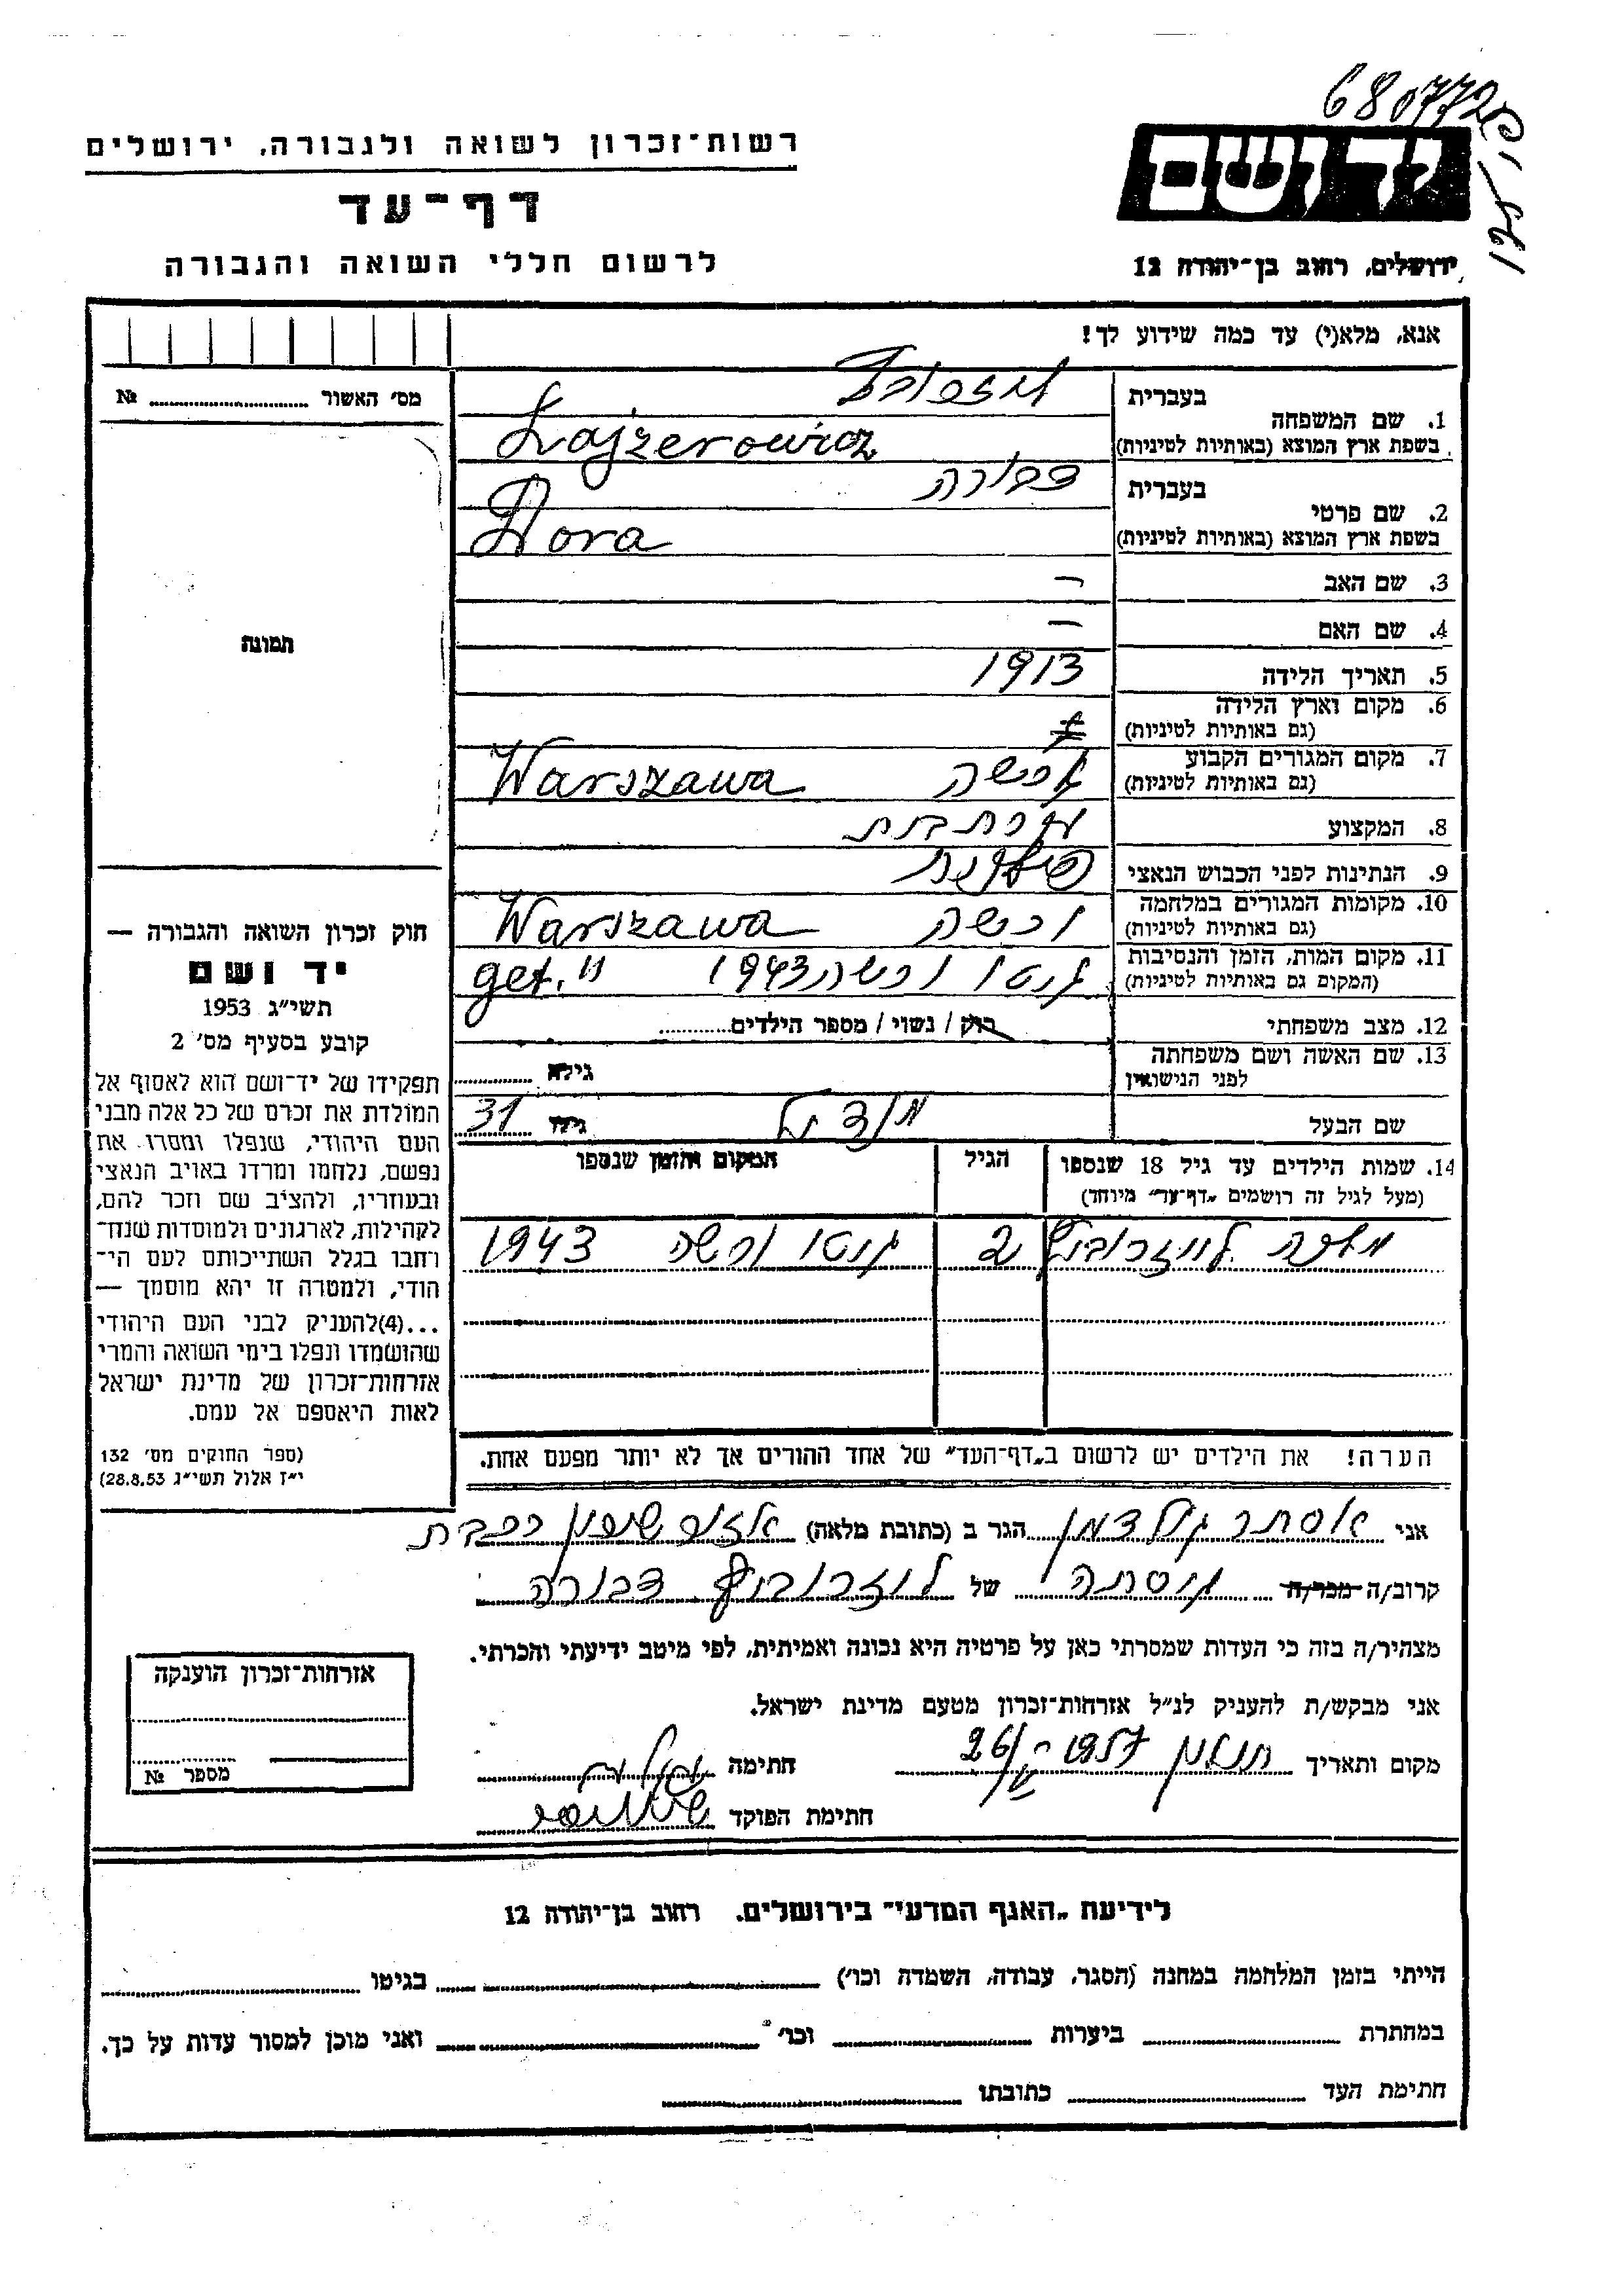 680772
יד ושם
רשות־זכרון לשואה ולגבורה, ירושלים
דף־עד
לרשום חללי השואה והגבורה
ירושלים, רחוב בן־יהודה 12
אנא, מלא(י) עד כמה שידוע לך!
מס' האשור № ....
1. שם המשפחה
בעברית
בשפת ארץ המוצא (באותיות לטיניות) Lajzerowicz
2. שם פרטי
בעברית דבורה
בשפת ארץ המוצא (באותיות לטיניות) Dora
3. שם האב —
4. שם האם —
5. תאריך הלידה 1913
6. מקום וארץ הלידה
(גם באותיות לטיניות)
7. מקום המגורים הקבוע
(גם באותיות לטיניות) Warszawa
8. המקצוע
9. הנתינות לפני הכבוש הנאצי פולנית
10. מקומות המגורים במלחמה
(גם באותיות לטיניות) ורשה Warszawa
11. מקום המות, הזמן והנסיבות
(המקום גם באותיות לטיניות) גטו ורשה 1943 get. "
12. מצב משפחתי רוק / נשוי / מספר הילדים....
13. שם האשה ושם משפחתה
לפני הנישואין גילה ....
שם הבעל גילו 31
14. שמות הילדים עד גיל 18 שנספו הגיל המקום והזמן שנספו
(מעל לגיל זה רושמים „דף־עד" מיוחד)
לויזרוביץ 2 גטו ורשה 1943
הערה! את הילדים יש לרשום ב„דף־העד" של אחד ההורים אך לא יותר מפעם אחת.
תמונה
חוק זכרון השואה והגבורה —
יד ושם
תשי"ג 1953
קובע בסעיף מס' 2
תפקידו של יד־ושם הוא לאסוף אל
המולדת את זכרם של כל אלה מבני
העם היהודי, שנפלו ומסרו את
נפשם, נלחמו ומרדו באויב הנאצי
ובעוזריו, ולהציב שם וזכר להם,
לקהילות, לארגונים ולמוסדות שנח־
רחבו בגלל השתייכותם לעם הי־
הודי, ולמטרה זו יהא מוסמך —
...(4)להעניק לבני העם היהודי
שהושמדו ונפלו בימי השואה והמרי
אזרחות־זכרון של מדינת ישראל
לאות היאספם אל עמם.
(ספר החוקים מס' 132
י"ז אלול תשי"ג 28.8.53)
אני אסתר גולדמן הגר ב (כתובת מלאה)
קרוב/ה מכר/ה גיסתה של לוזרוביץ דבורה
מצהיר/ה בזה כי העדות שמסרתי כאן על פרטיה היא נכונה ואמיתית, לפי מיטב ידיעתי והכרתי.
אני מבקש/ת להעניק לנ"ל אזרחות־זכרון מטעם מדינת ישראל.
מקום ותאריך 1957 חתימה
חתימת הפוקד
אזרחות־זכרון הוענקה
מספר №
לידיעת „האגף המדעי" בירושלים. רחוב בן־יהודה 12
הייתי בזמן המלחמה במחנה (הסגר, עבודה, השמדה וכו') .... בגיטו ....
במחתרת .... ביערות .... וכו' .... ואני מוכן למסור עדות על כך.
חתימת העד .... כתובתו ....